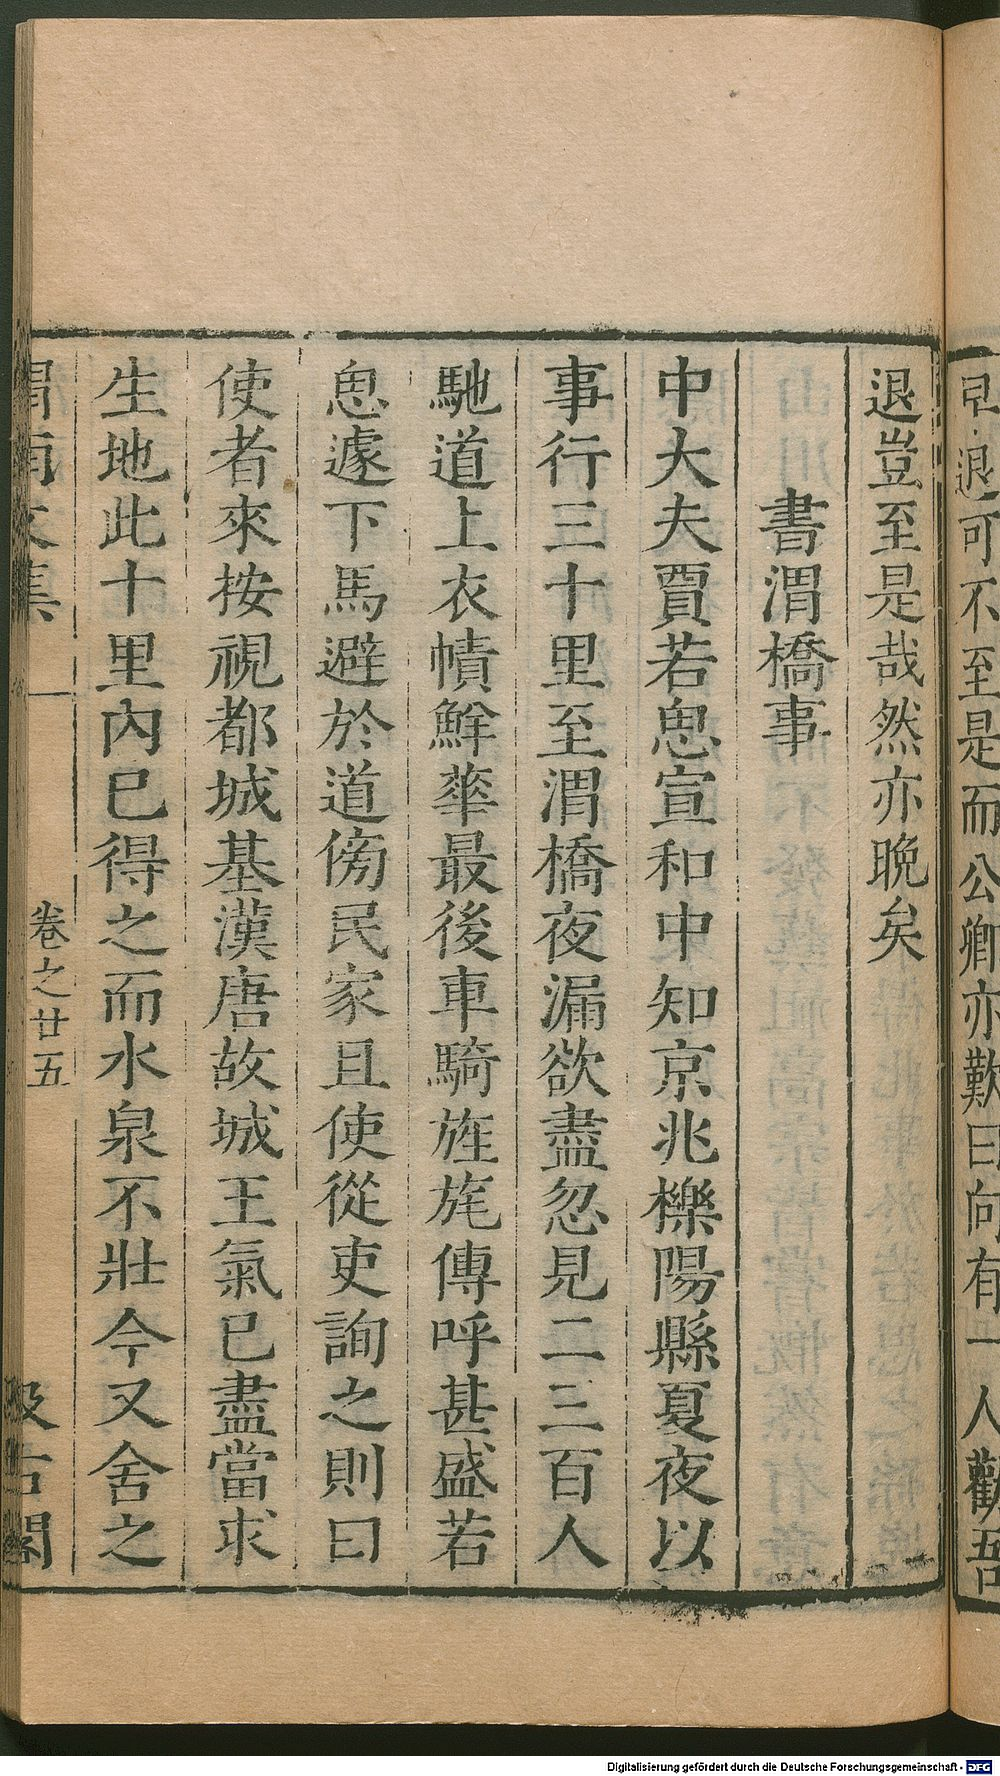 早退可不至是而公卿亦歎曰向有一人勸吾
退豈至是哉然亦晚矣
書渭橋事
中大夫賈若思宣和中知京兆櫟陽縣夏夜以
事行三十里至渭橋夜漏欲盡忽見二三百人
馳道上衣幘鮮華最後車騎旌旄傳呼甚盛若
思遽下馬避於道傍民家且使從吏詢之則曰
使者來按視都城基漢唐故城王氣已盡當求
生地此十里內已得之而水泉不壯今又舍之
渭南文集
卷之廿五
汲古閣
Digitalisierung gefördert durch die Deutsche Forschungsgemeinschaft - DFG